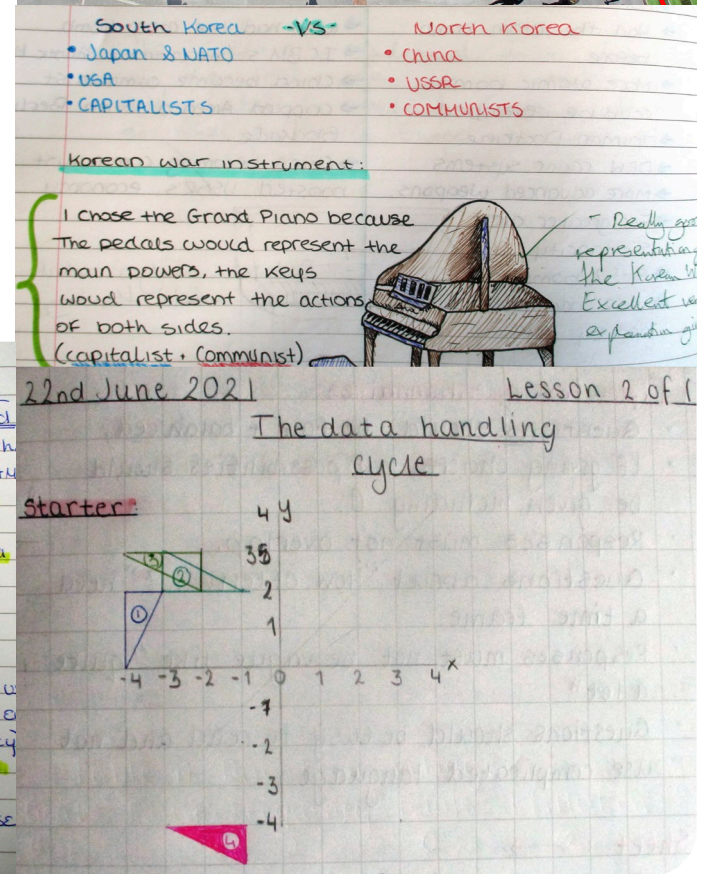 South Korea -VS- North Korea
• Japan & NATO
• USA
• CAPITALISTS
• China
• USSR
• COMMUNISTS
Korean war instrument:
I chose the Grand Piano because
The pedals would represent the
main powers, the keys
woud represent the actions
of both sides.
(capitalist + communist)
- Really
representation
the Korean
Excellent
22nd June 2021 Lesson 2 of 1
The data handling
cycle
Starter:
4 y
2
1
-4 -3 -2 -1 0 1 2 3 4 x
-2
-3
-4
③ ②
①
④